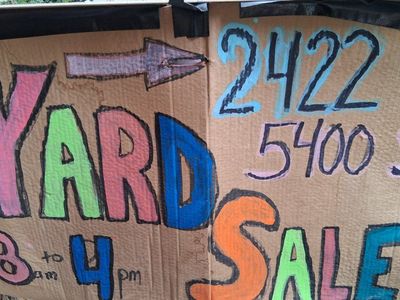 2422
5400 S
YARD
SALE
8 am to 4 pm